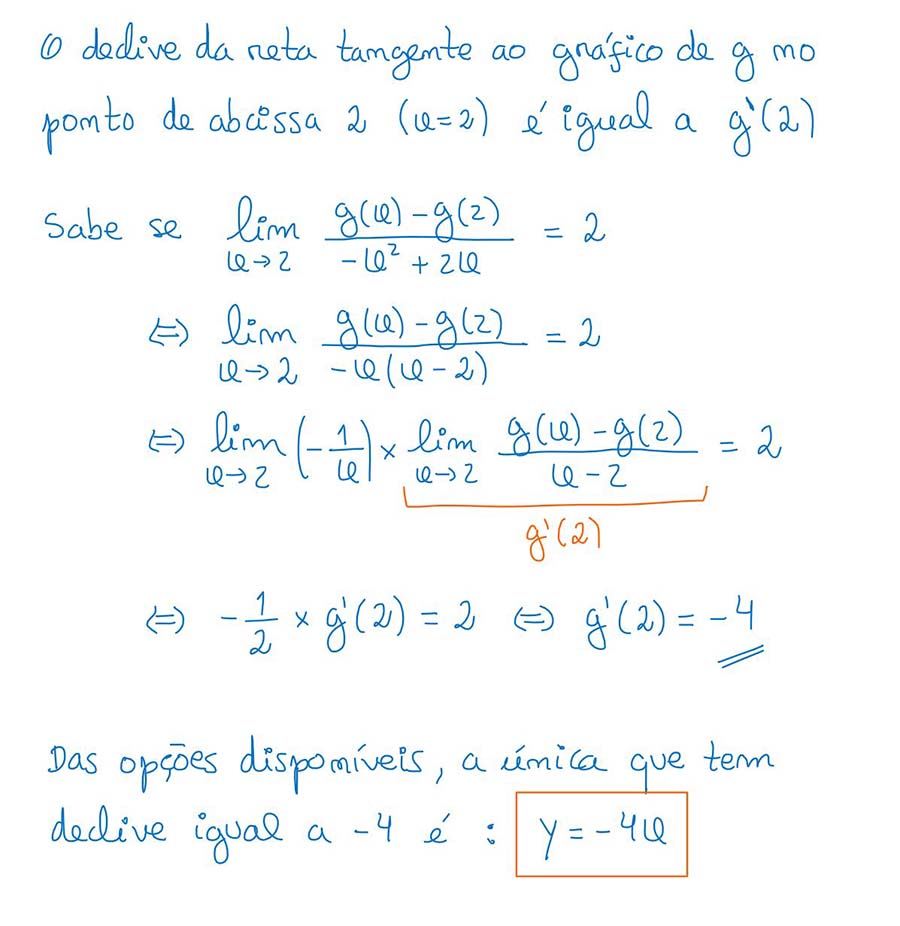 O declive da reta tangente ao gráfico de g no
ponto de abcissa 2 (x=2) é igual a g'(2)
Sabe se lim x→2 (g(x)-g(2))/(-x²+2x) = 2
⇔ lim x→2 (g(x)-g(2))/(-x(x-2)) = 2
⇔ lim x→2 (-1/x) × lim x→2 (g(x)-g(2))/(x-2) = 2
g'(2)
⇔ -1/2 × g'(2) = 2 ⇔ g'(2) = -4
Das opções disponíveis, a única que tem
declive igual a -4 é : y = -4x